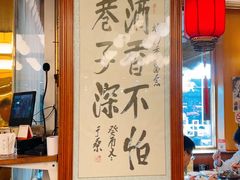 酒香不怕
巷子深
癸酉冬